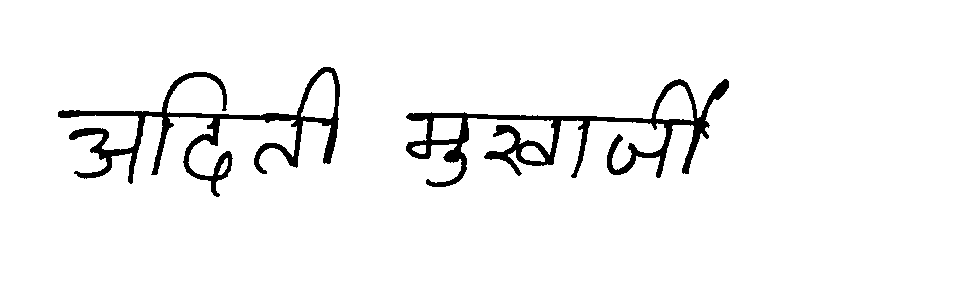 अदिती मुखार्जी